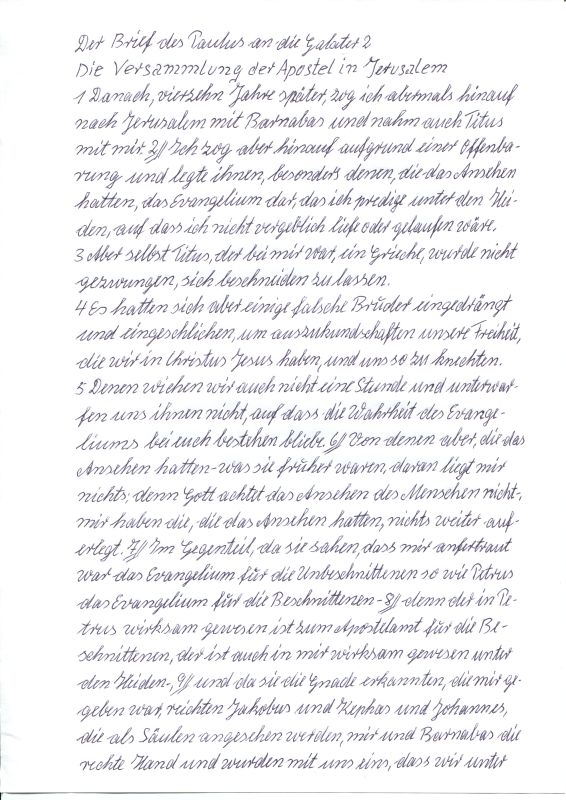 Der Brief des Paulus an die Galater 2
Die Versammlung der Apostel in Jerusalem
1 Danach, vierzehn Jahre später, zog ich abermals hinauf
nach Jerusalem mit Barnabas und nahm auch Titus
mit mir. 2// Ich zog aber hinauf aufgrund einer Offenba-
rung und legte ihnen, besonders denen, die das Ansehen
hatten, das Evangelium dar, das ich predige unter den Hei-
den, auf dass ich nicht vergeblich liefe oder gelaufen wäre.
3 Aber selbst Titus, der bei mir war, ein Grieche, wurde nicht
gezwungen, sich beschneiden zu lassen.
4 Es hatten sich aber einige falsche Brüder eingedrängt
und eingeschlichen, um auszukundschaften unsere Freiheit,
die wir in Christus Jesus haben, und uns so zu knechten.
5 Denen wichen wir auch nicht eine Stunde und unterwar-
fen uns ihnen nicht, auf dass die Wahrheit des Evange-
liums bei euch bestehen bliebe. 6// Von denen aber, die das
Ansehen hatten - was sie früher waren, daran liegt mir
nichts; denn Gott achtet das Ansehen des Menschen nicht -,
mir haben die, die das Ansehen hatten, nichts weiter auf-
erlegt. 7// Im Gegenteil, da sie sahen, dass mir anvertraut
war das Evangelium für die Unbeschnittenen so wie Petrus
das Evangelium für die Beschnittenen - 8// denn der in Pe-
trus wirksam gewesen ist zum Apostelamt für die Be-
schnittenen, der ist auch in mir wirksam gewesen unter
den Heiden -, 9// und da sie die Gnade erkannten, die mir ge-
geben war, reichten Jakobus und Kephas und Johannes,
die als Säulen angesehen werden, mir und Barnabas die
rechte Hand und wurden mit uns eins, dass wir unter